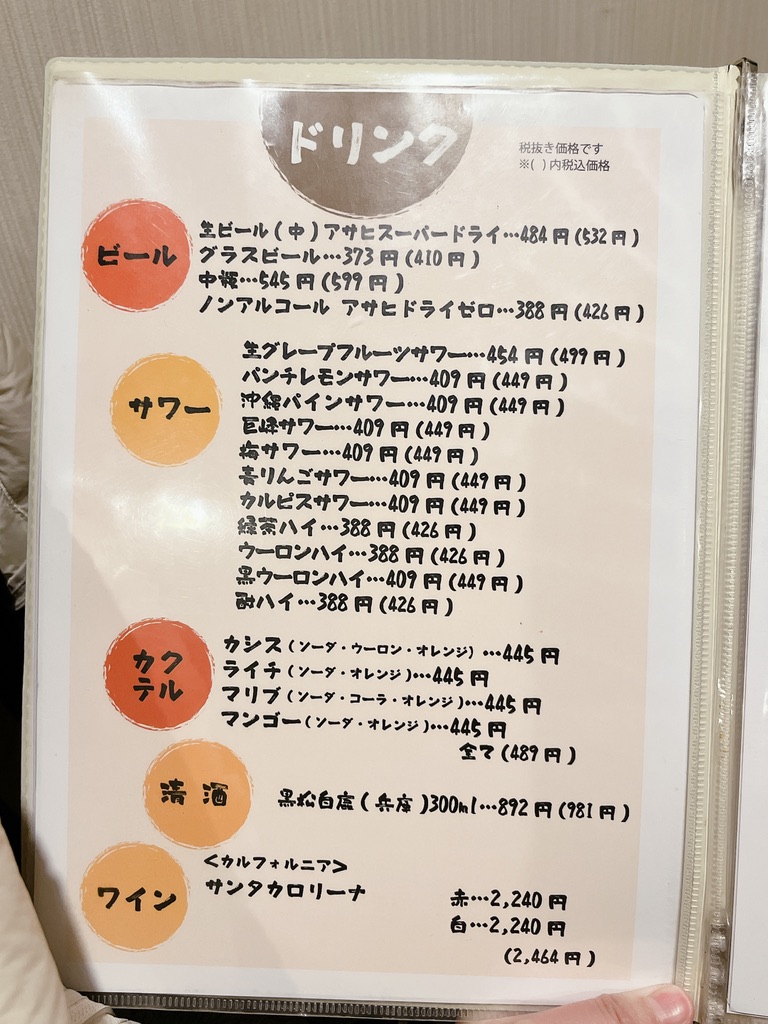 ドリンク
税抜き価格です
※( )内税込価格
ビール
生ビール(中)アサヒスーパードライ…484円(532円)
グラスビール…373円(410円)
中瓶…545円(599円)
ノンアルコール アサヒドライゼロ…388円(426円)
サワー
生グレープフルーツサワー…454円(499円)
パンチレモンサワー…409円(449円)
沖縄パインサワー…409円(449円)
巨峰サワー…409円(449円)
梅サワー…409円(449円)
青りんごサワー…409円(449円)
カルピスサワー…409円(449円)
緑茶ハイ…388円(426円)
ウーロンハイ…388円(426円)
黒ウーロンハイ…409円(449円)
酎ハイ…388円(426円)
カクテル
カシス(ソーダ・ウーロン・オレンジ)…445円
ライチ(ソーダ・オレンジ)…445円
マリブ(ソーダ・コーラ・オレンジ)…445円
マンゴー(ソーダ・オレンジ)…445円
全て(489円)
清酒
黒松白鹿(兵庫)300ml…892円(981円)
ワイン
<カルフォルニア>
サンタカロリーナ
赤…2,240円
白…2,240円
(2,464円)